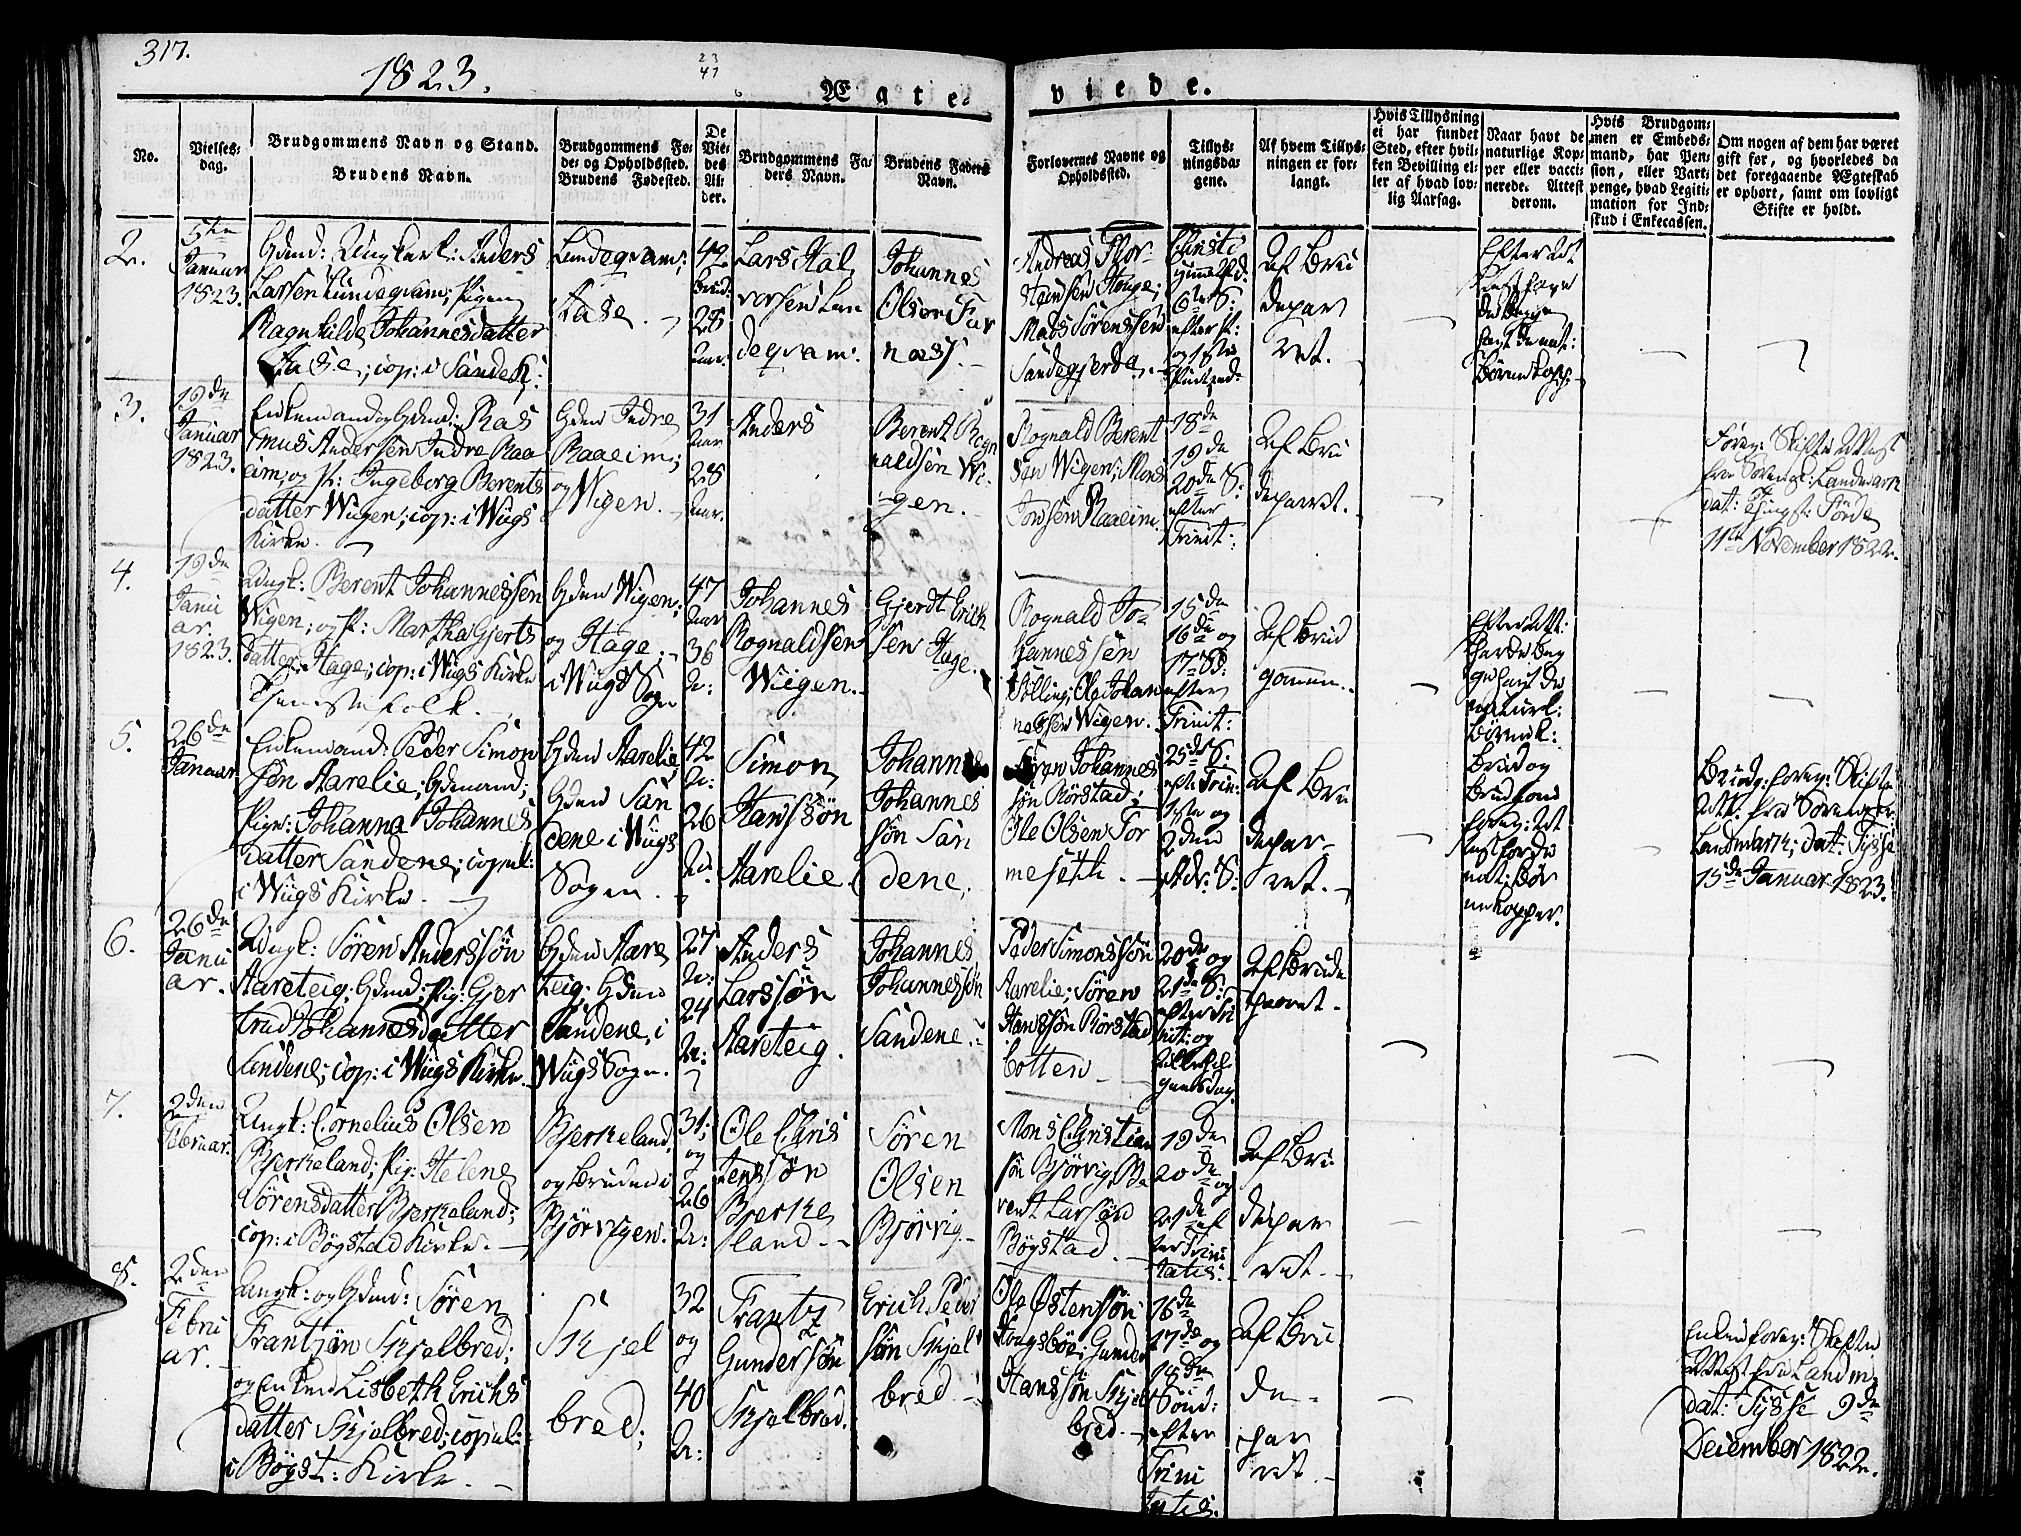 317.
1823.
23
41
Ægteviede.
No.
Vielses-
dag.
Brudgommens Navn og Stand.
Brudens Navn.
Brudgommens Fø-
de- og Opholdssted.
Brudens Fødested.
De
Vie-
des
Al-
der.
Brudgommens Fa-
ders Navn.
Brudens Faders
Navn.
Forlovernes Navne og
Opholdssted.
Tillys-
ningsda-
gene.
Af hvem Tillys-
ningen er for-
langt.
Hvis Tillysning
ei har fundet
Sted, efter hvil-
ken Bevilling el-
ler af hvad lov-
lig Aarsag.
Naar havt de
naturlige Kop-
per eller vacci-
nerede. Attest
derom.
Hvis Brudgom-
men er Embeds-
mand, har Pen-
sion, eller Vart-
penge, hvad Legiti-
mation for Ind-
skud i Enkecassen.
Om nogen af dem har været
gift før, og hvorledes da
det foregaaende Ægteskab
er ophørt, samt om lovligt
Skifte er holdt.
2.
5te
Januar
1823.
Gdmd: Ungkarl: Anders
Larsen Lundeqvam; Pigen
Ragnhilde Johannesdatter
Aase; cop: i Sande K:
Lundeqvam;
Aase.
42
28
Aar.
Lars Hal
vorsen Lun
deqvam.
Johannes
Olsen Fur
næss.
Andreas Thor-
stensen Houge;
Mads Sörenssen
Sandegjerde.
6te S:
efter
Af Bru
deparret.
3.
19de
Januar
1823.
Enkemand og Gdmd: Ras
mus Andersen Indre Raa
eim; og P: Ingeborg Berents
datter Wiigen; cop: i Wiigs
Kirke.
Gden Indre
Raaeim;
og Wiigen.
31
Aar
28
Aar.
Anders
Berent Rogn
aldsen Wi-
gen.
Rognald Berent
sen Wigen; Mons
Jonsen Raaeim.
18de
19de
20de S:
efter
Trinit:
Af Bru
deparret.
Forrig: Skifte Attest
fra Sorensk: Landmark
dat: Thingst: Förde
11te November 1822.
4.
19de
Janu
ar.
1823.
Ungk: Berent Johannessen
Wigen; og P: Martha Gjerts
datter Hage; cop: i Wiigs Kirke
Tjenestefolk.
Gden Wigen;
og Hage
i Wiigs Sogn
47
Aar
36
A:
Johannes
Rognaldsen
Wiigen.
Gjerdt Erich
sen Hage.
Rognald Jo-
hannessen
Ole Johan
nessen Wigen.
15de
16de og
17de S:
efter
Trinit:
Af Brud
gommen.
5.
26de
Januar
Enkemand: Peder Simon
sön Aarelie; Gdmand;
Pigen: Johanna Johannes
datter Sandene; copul:
i Wiigs Kirke.
Gden Aarelie;
Gden San
dene i Wiigs
Sogn.
42
A:
26
A:
Simon
Hanssön
Aarelie.
Johannes
Johannes
sön San
dene.
Sören Johannes
sön Rörstad;
Ole Olsen Tor
mesætt.
25de S:
eft: Trin:
1ste og
2den
Adv: S:
Af Bru
depar-
ret.
Brud og
Brudgom
Brudg: forrig: Skifte
Att: fra Sorenskr:
Landmark; dat: Tysse
15de Januar 1823.
6.
26de
Janu
ar.
Ungk: Sören Anderssön
Aareteig; Gdmd: Pig: Gjer
trud Johannesdatter
Sandene; cop: i Wiigs Kirke.
Gden Aare
teig; Gden
Sandene, i
Wiigs Sogn.
27
A:
24
A:
Anders
Larssön
Aareteig.
Johannes
Johannessön
Sandene.
Peder Simonssön
Aarelie; Sören
Hanssön Rörstad
botten.
20de og
21de S:
efter Tri
nit: og
Allehel
gensdag.
Af Brude
parret.
7.
2den
Februar.
Ungk: Cornelius Olsen
Bjerkeland; Pig: Helene
Sörensdatter Bjerkeland;
cop: i Bögstad Kirke.
Bjerkeland;
og Bruden i
Bjørvigen.
31;
og
26
A:
Ole Chris
tenssön
Bjerke
land.
Sören
Olsen
Bjørvig.
Mons Christian
sön Bjørvig; Be
rent Larssön
Bögstad.
19de
20de og
21de ef
ter Trini
tatis.
Af Bru
depar
ret.
8.
2den
Febru
ar.
Ungk: og Gdmd: Sören
Frantzön Skjelbred;
og Enken Lisbeth Erichs
datter Skjelbred; copul:
i Bögst: Kirke.
Skjel
bred;
32
og
40
A:
Frantz
Gunderssön
Skjelbred.
Erich Peder
sön Skjel
bred.
Ole Östenssön
Gunder
Hanssön Skjel
bred.
16de
17de og
18de
Sönd:
efter
Trini
tatis.
Af Bru
de-
par
ret.
Enken forrig: Skifte
Attest fra Landm:
dat: Tysse 9de
December 1822.